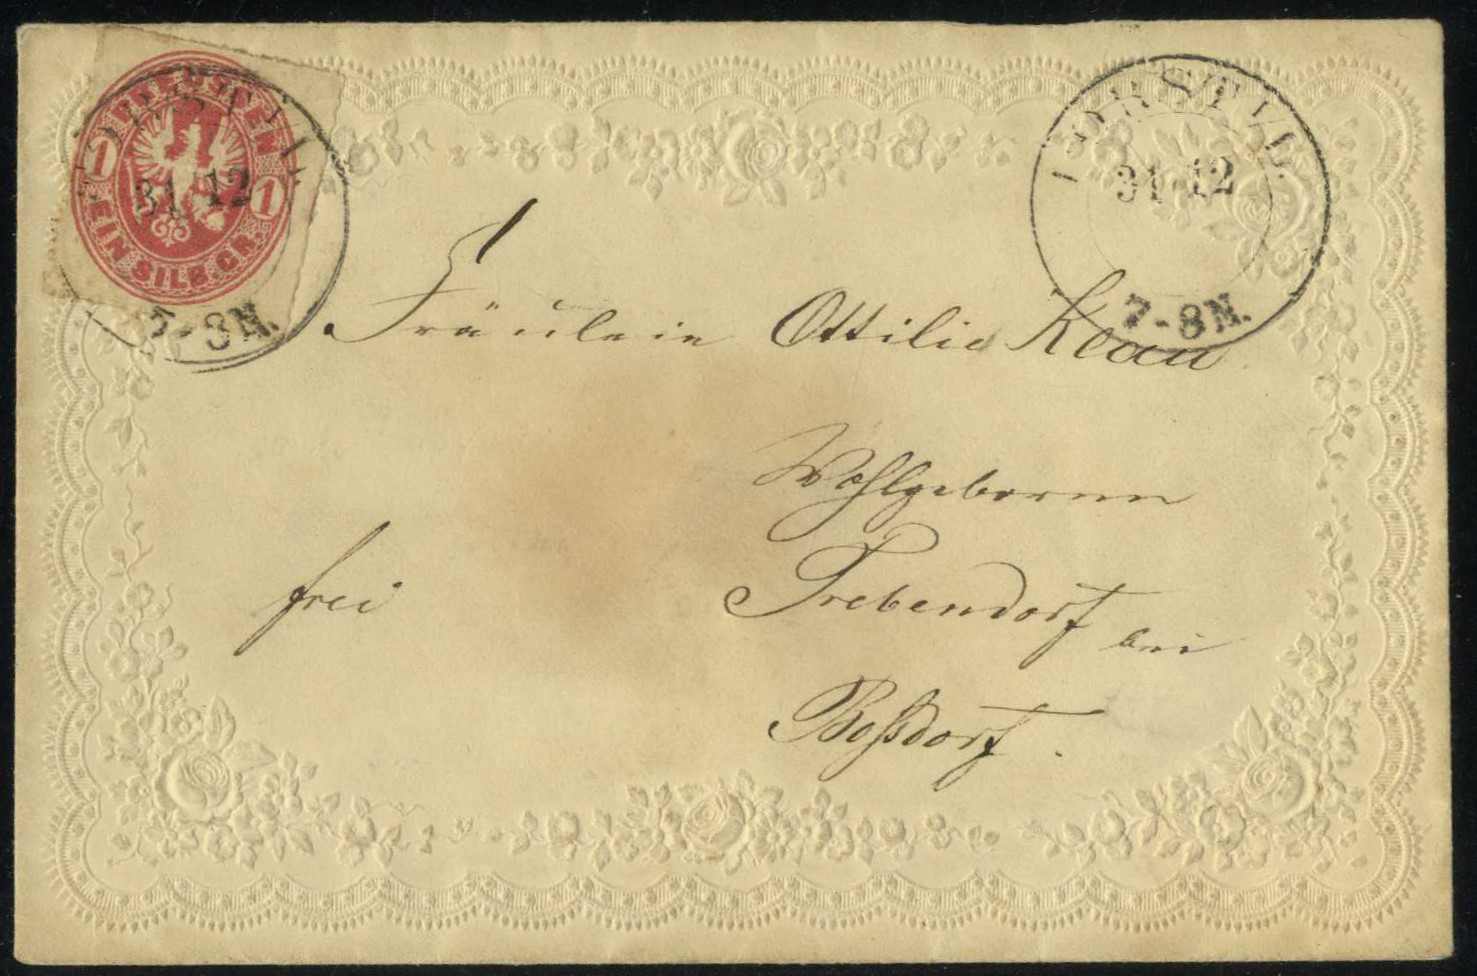 PREUSSEN
1 1
EIN SILB. GR.
FORST I.L.
31 12
7-8N.
FORST I.L.
31 12
7-8N.
Fräulein Ottilie
Wohlgeboren
frei
Trebendorf bei
Boßdorf.